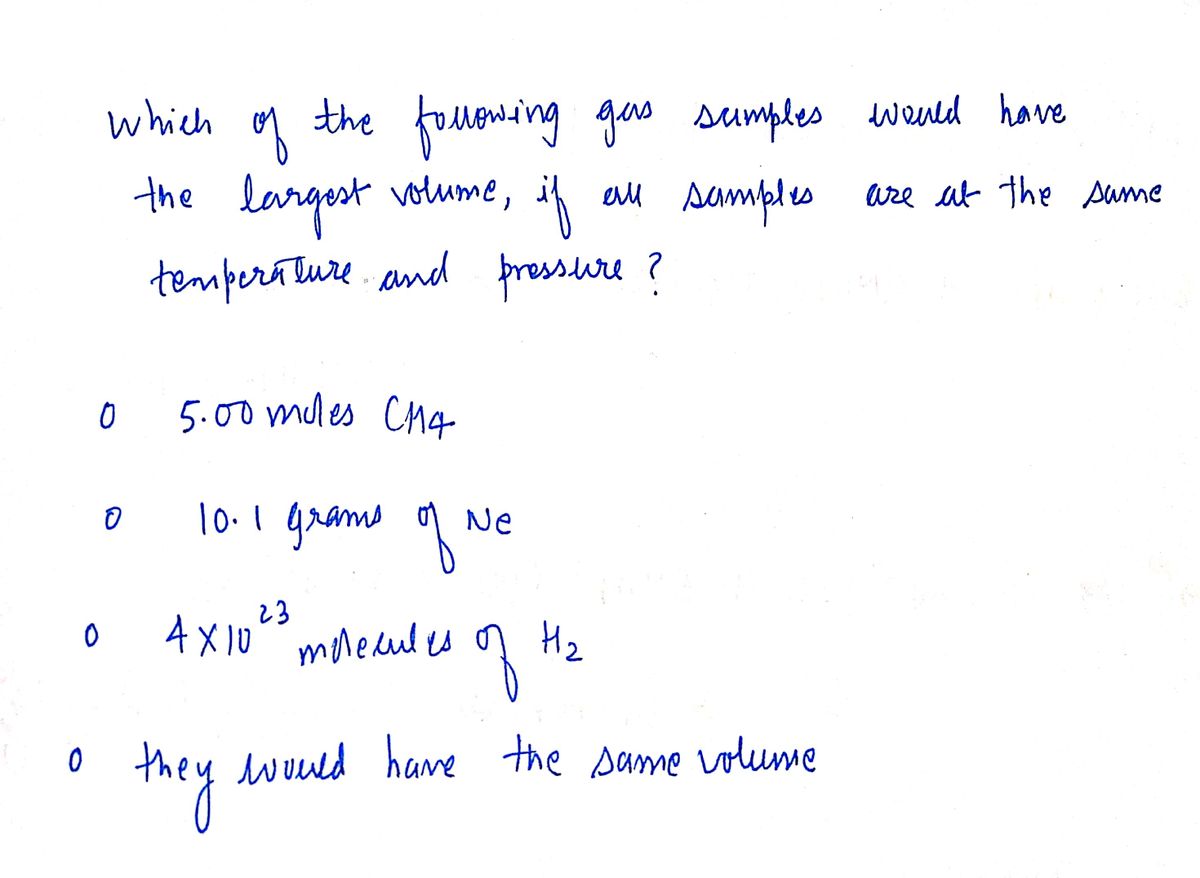 Which of the following gas samples would have
the largest volume, if all samples are at the same
temperature and pressure ?
o 5.00 moles CH4
o 10.1 grams of Ne
o 4 X 10²³ molecules of H₂
o they would have the same volume